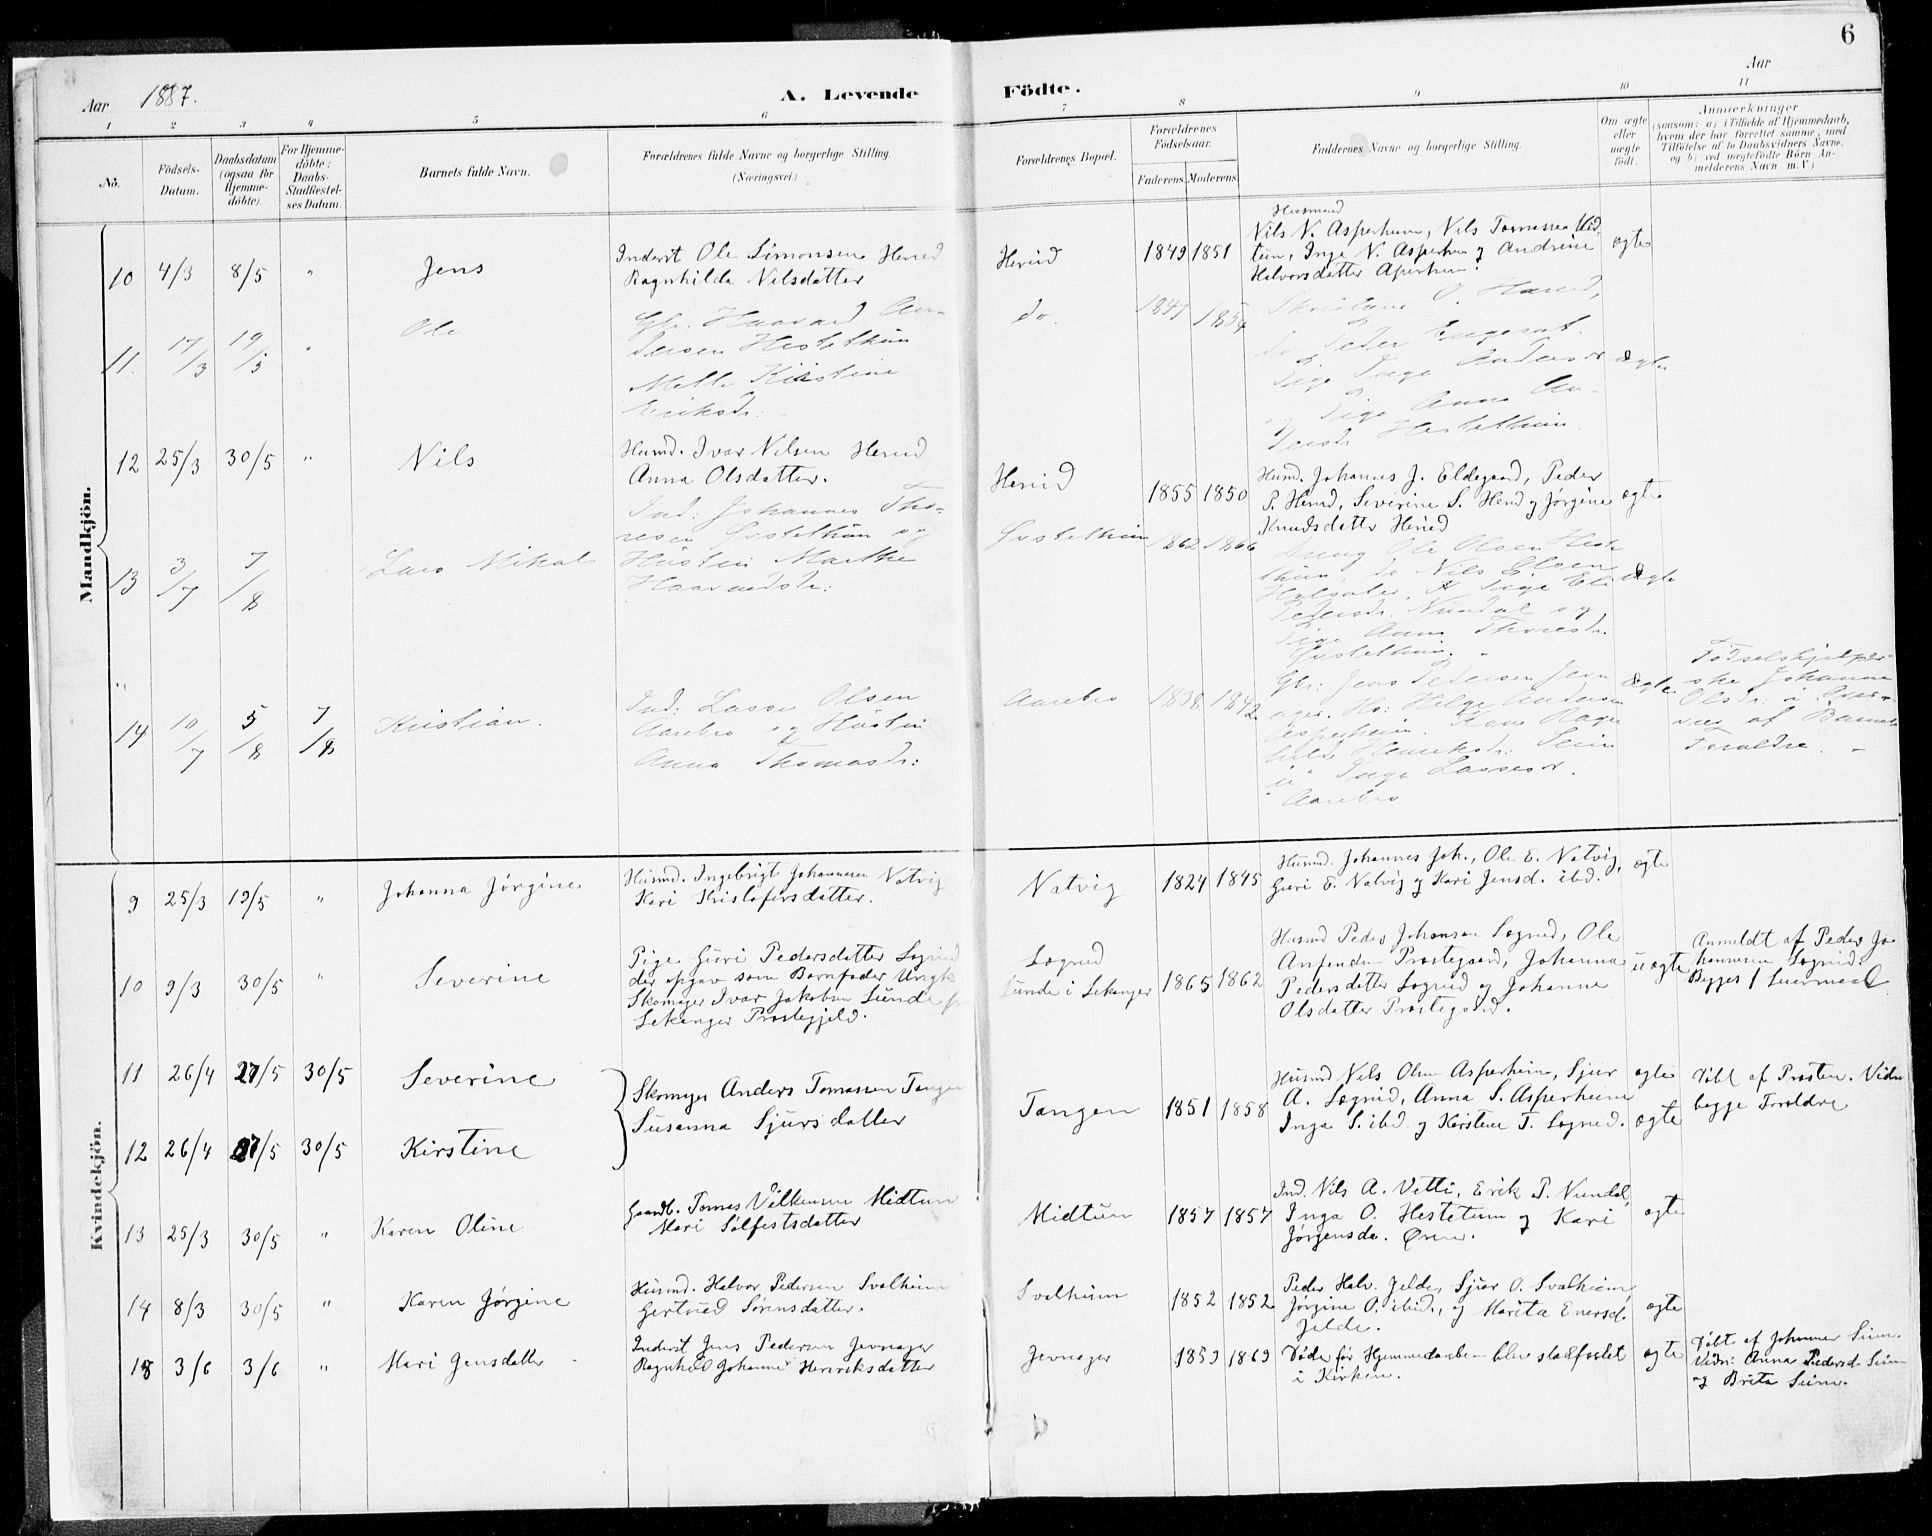 6
Aar 1887.
A. Levende Födte.
Aar
1 2 3 4 5 6 7 8 9 10 11
No.
Födsels-Datum.
Daabsdatum (ogsaa for Hjemme-döbte).
For Hjemme-döbte: Daabs-Stadfæstel-ses Datum.
Barnets fulde Navn.
Forældrenes fulde Navne og borgerlige Stilling. (Næringsvei.)
Forældrenes Bopæl.
Forældrenes Födselsaar.
Faderens. Moderens.
Faddernes Navne og borgerlige Stilling.
Om ægte eller uægte født.
Anmærkninger
(saasom: a) i Tilfælde af Hjemmedaab,
hvem der har forrettet samme, med
Tilföielse af to Daabsvidners Navne.
og b) ved uægtefödte Börn An-
melderens Navn m. V.)
Mandkjön.
10 4/3 8/5 " Jens
Inderst Ole Simonsen Hereid
Ragnhilda Nilsdatter
Hereid 1849 1851
Husmænd
Nils N. Asperheim, Nils Tomassen Mid-
tun, Inga N. Asperheim og Andrine
Halvorsdatter Asperheim.
ægte
11. 17/3 19/5 " Ole
Gbr. Haavard An-
dersen Hestethun
Mette Kirstine
Eriksdr:
do. 1847 1854
O. Hereid,
do Peder
Pige Inga Andersdr
og Pige Anna An-
dersdr Hestethun.
ægte
12 25/3 30/5 " Nils
Husmd. Ivar Nilsen Hereid
Anna Olsdatter.
Hereid 1855 1850
Husmd. Johannes J. Eldegaard, Peder
P. Hereid, Severine S. Hereid og Jørgine
Knudsdatter Hereid
ægte
13 3/7 7/8 Lars Mikal
Ind: Johannes Tho-
resen og
Hustru Marthe
Haavardsdr:
1862 1866
Ung. Ole Olsen Heste-
thun, do Nils Olsen
Pige Eli
Pedersdr. Nundal og
Pige Anna Thoresdr.
ægte
14 10/7 5/8 7/8 Kristian.
Ind: Lasse Olsen
Aarebro og Hustru
Anna Thomasdr:
Aarebro 1838 1842
Gbr: Jens Pedersen Jevn-
ager. Hr: Helge Andersen
Asperheim. Kone Ragn-
hild Henriksdr: Seim
Inga Lassesdr.
Aarebro
ægte
Fødselshjælper-
ske Johanne
Olsdr: i
af Barnets
Forældre. –
Kvindekjön.
9 25/3 19/5 " Johanna Jørgine
Husmd. Ingebrigt Johannesen Natvig
Kari Kristofersdatter.
Natvig 1824 1845
Husmd. Johannes Joh., Ole E. Natvig,
Guri E. Natvig og Kari Jensd. ibd.
ægte
10 9/3 30/5 " Severine
Pige Guri Pedersdatter Sognid
der opgav som Barnfader Ungk
Skomager Ivar Jakobsen Sunde fr
Lekanger Præstegjeld.
Lognid
Sunde i Lekanger 1865 1862
Husmd Peder Johansen Lognid, Ole
Anfendsen Prestegaard, Johanna
Pedersdatter Lognid og Johanne
Olsdatter Prestegaard.
uægte
Anmeldt af Peder Jo-
hannesen Lognid.
Begges 1 Leiermaal
11 26/4 27/5 30/5 Severine
12 26/4 27/5 30/5 Kirstine
Skomager Anders Tomassen Tangen
Susanna Sjursdatter
Tangen 1851 1858
Husmd Nils Olsen Asperheim, Sjur
A. Lognid, Anna S. Asperheim
Inga S. ibd og Kirstine T. Lognid.
ægte
ægte
Døbt af Præsten. Vidn
begge Forældre
13 25/3 30/5 " Karen Oline
Gaardb. Tomas Vilkensen Midtun
Mari Sølfestsdatter
Midtun 1857 1857
Ind. Nils A. Vetti, Erik P. Nundal,
Inga O. Hestetun og Kari
Jørgensda. Øren.
ægte
14 8/3 30/5 " Karen Jørgine
Husmd. Halvor Pedersen Svalheim
Gertrud Sørensdatter.
Svalheim 1852 1852
Peder Halv. Jelde, Sjur O. Svalheim,
Jørgine O. ibid., og Marita Enersd.
Jelde.
ægte
15 3/6 3/6 " Mari Jensdatter
Inderst Jens Pedersen Jevnager
Ragnhild Johanne Henriksdatter
Jevnager 1859 1869
Døde før Hjemmedaaben blev stadfæstet
i Kirken.
ægte
Døbt af Johannes Seim.
Vidn: Anna Pedersd. Seim
og Brita Seim.